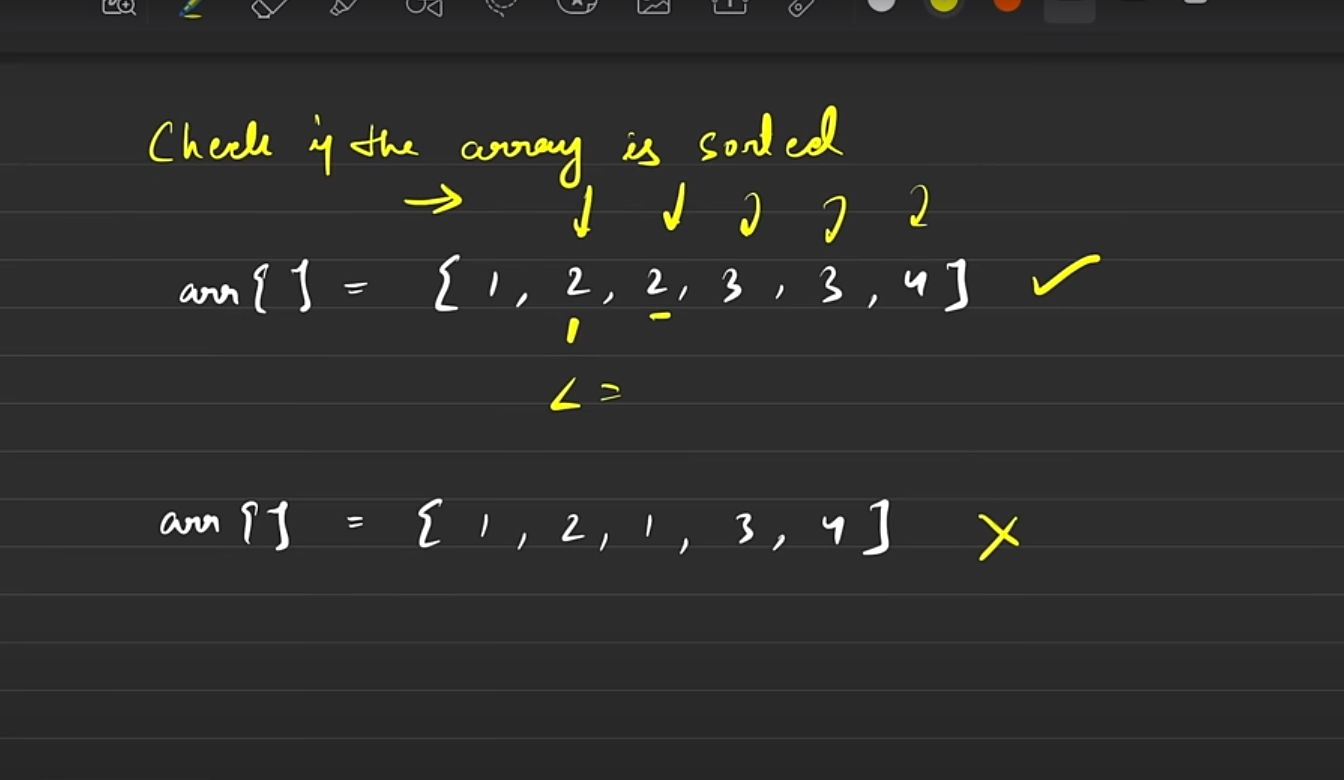 Check if the array is sorted
arr[] = [1, 2, 2, 3, 3, 4]
<=
arr[] = [1, 2, 1, 3, 4]